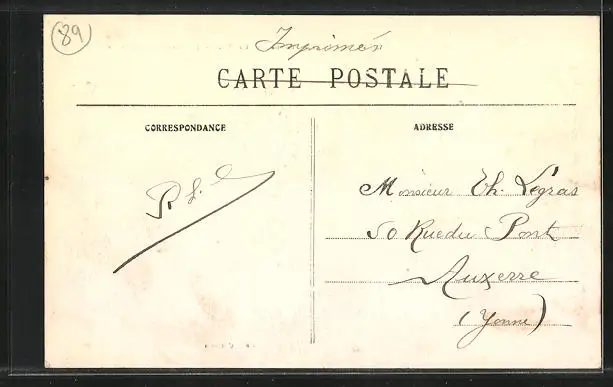 89
Imprimés
CARTE POSTALE
CORRESPONDANCE
ADRESSE
Monsieur Th. Légras
50 Rue du Pont
Auxerre
(Yonne)